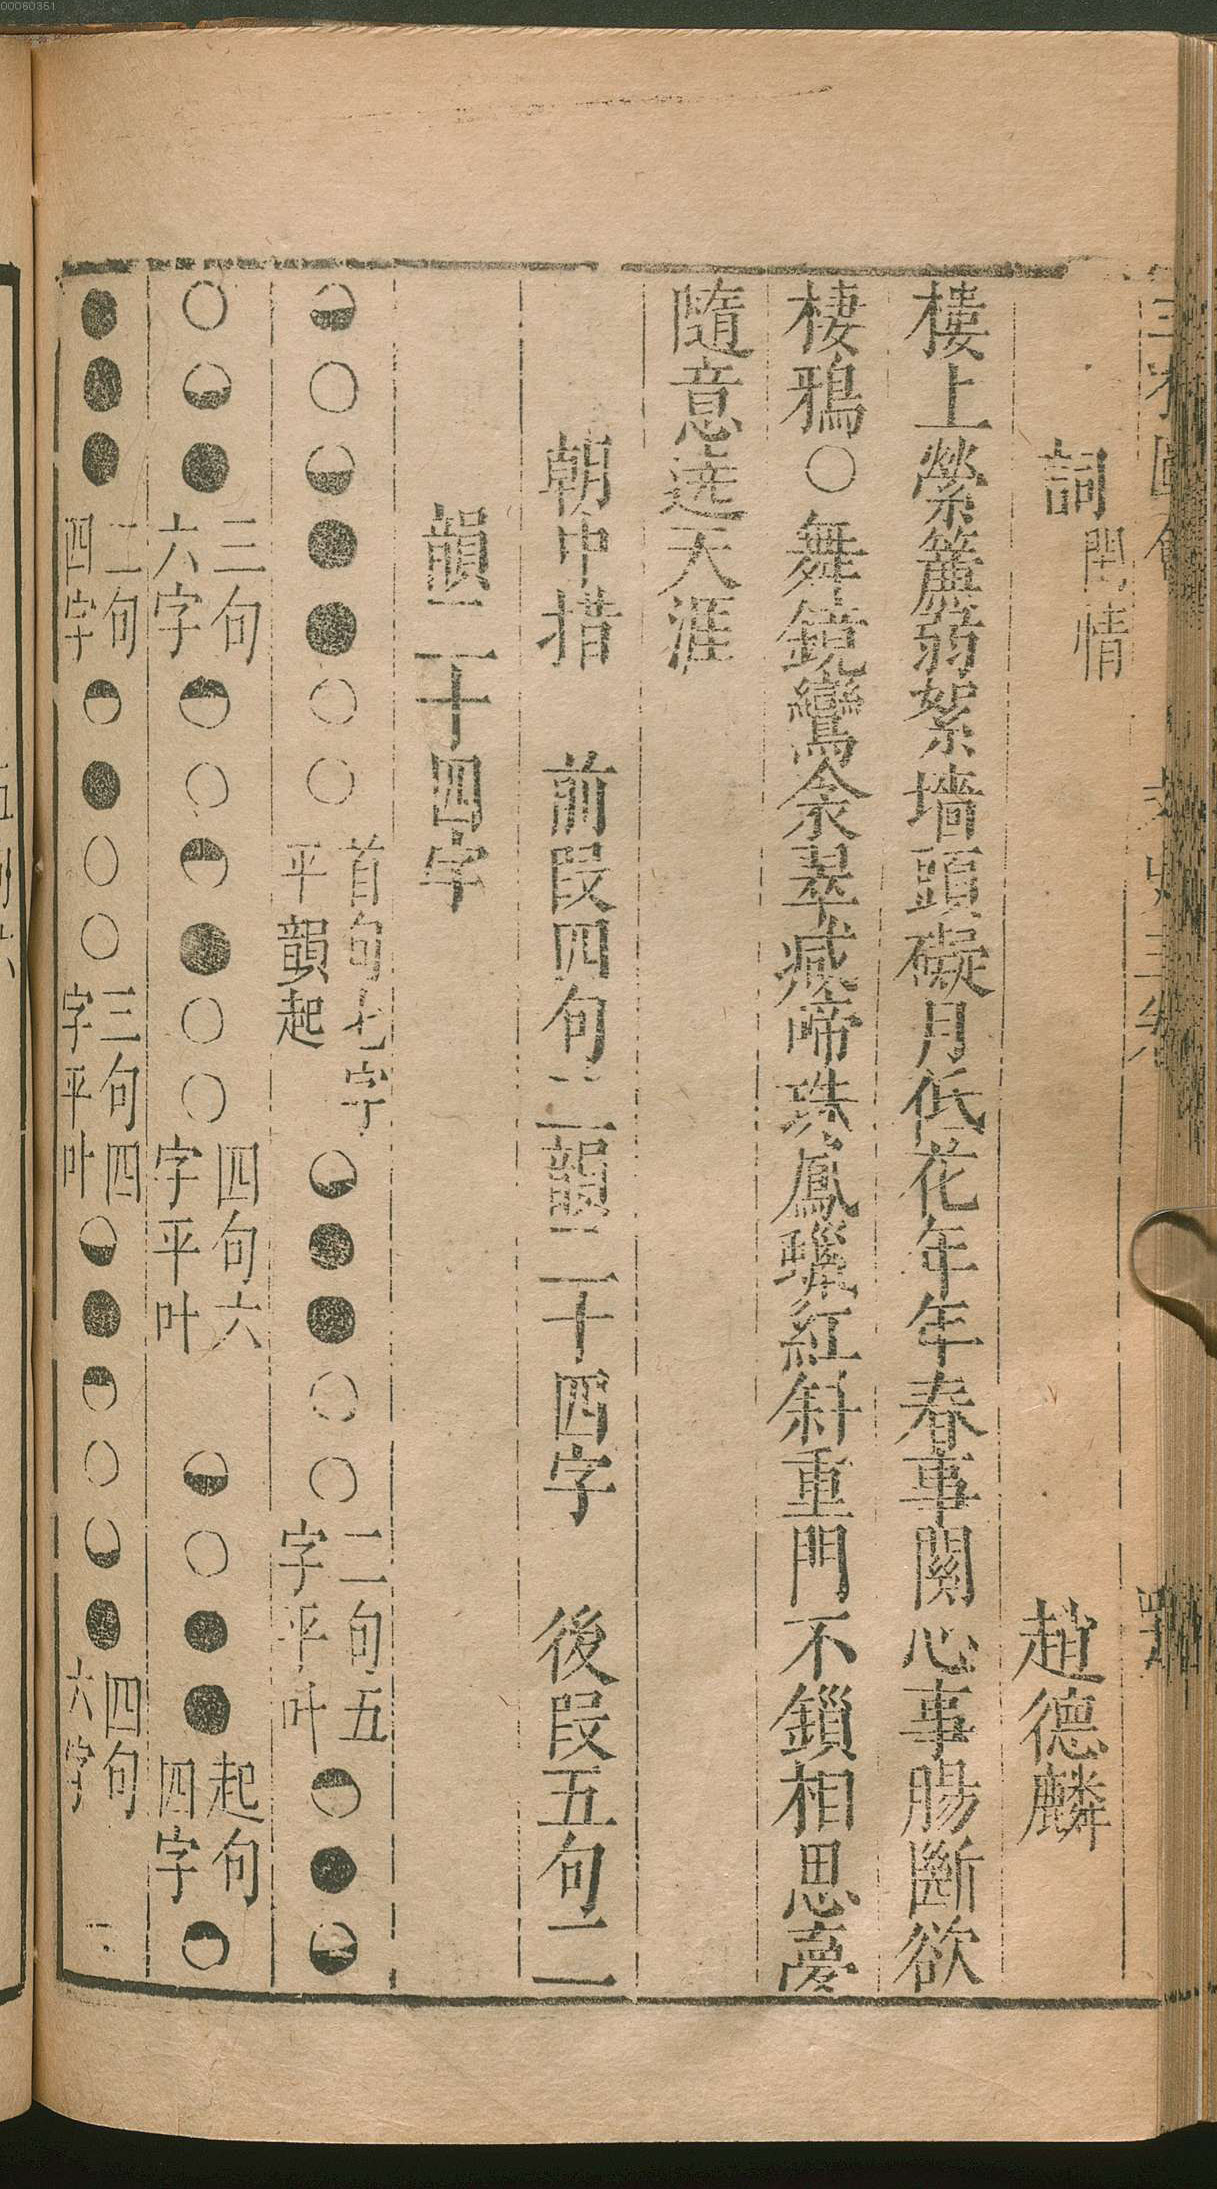 00060351
詞 閨情 趙德麟
樓上縈簾弱絮墻頭礙月低花年年春事關心事腸斷欲
棲鴉○舞鏡鸞衾翠減啼珠鳳蠟紅斜重門不鎖相思夢
隨意遶天涯
朝中措 前段四句二韻二十四字 後段五句二
韻二十四字
◒○◒●●○○首句七字平韻起◒●●○○二句五字平叶◓●◒
○◒●三句六字◓○◓●○○四句六字平叶 ◒○●●起句四字◓
●●●二句四字◓●○○三句四字平叶◒●◓○◒●四句六字